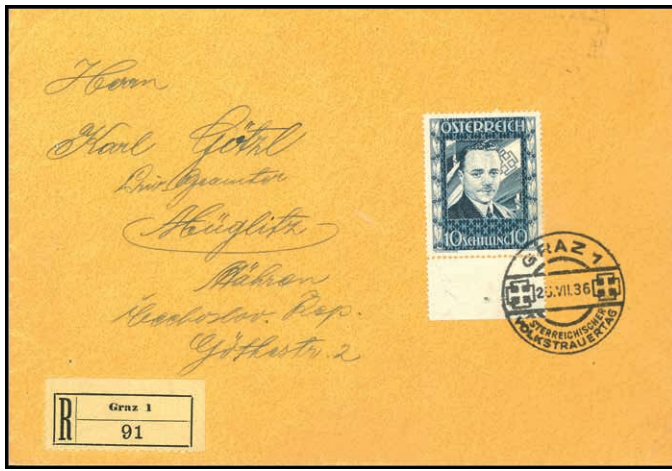 Herrn
Karl Götzl
Müglitz
Mähren
Čechoslov. Rep.
Göthestr. 2
ÖSTERREICH
10 SCHILLING 10
GRAZ 1
25.VII.36
ÖSTERREICHISCHER
VOLKSTRAUERTAG
R
Graz 1
91